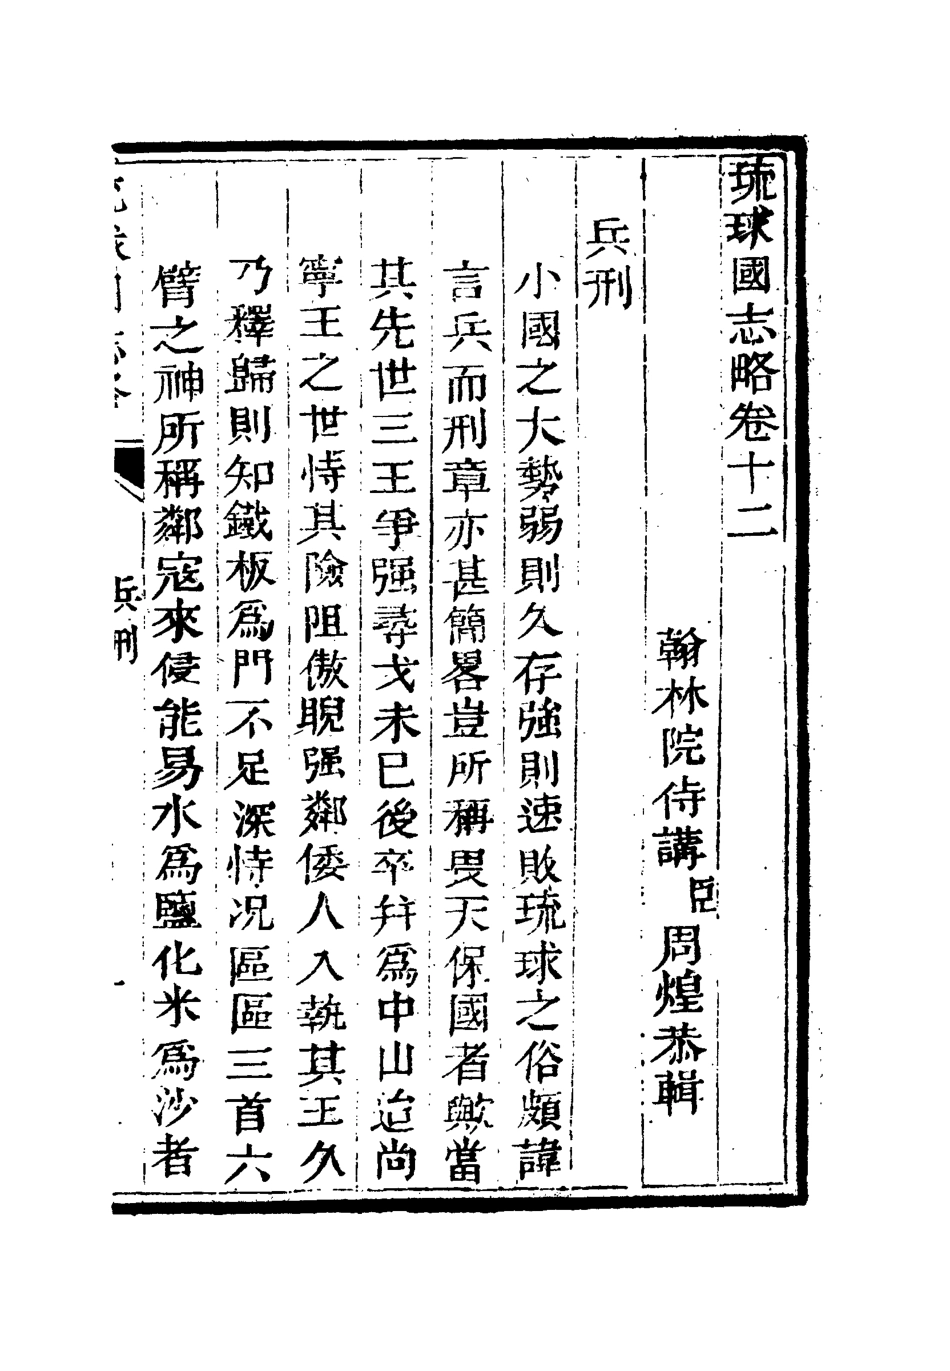 琉球國志略卷十二
翰林院侍講臣周煌恭輯
兵刑
小國之大勢弱則久存強則速敗琉球之俗頗諱
言兵而刑章亦甚簡畧豈所稱畏天保國者歟當
其先世三王爭强尋戈未已後卒幷爲中山迨尚
寧王之世恃其險阻傲睨强鄰倭人入執其王久
乃釋歸則知鐵板爲門不足深恃况區區三首六
臂之神所稱鄰寇來侵能易水爲鹽化米爲沙者
兵刑